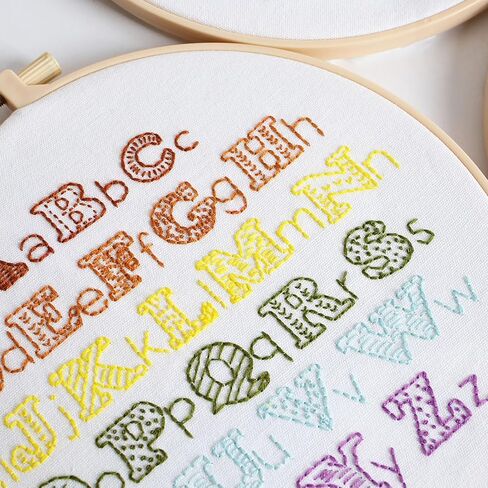 A a B b C c
d E e F f G g H h
J j K k L l M m N n
P p Q q R r S s
U u V v W w
Y Z z